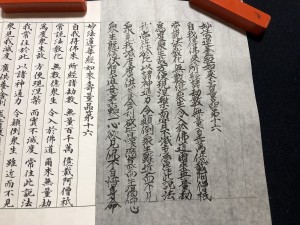 妙法蓮華經如來壽量品第十六
自我得佛來 所經諸劫數 無量百千萬 億載阿僧祇
常說法教化 無數億衆生 令入於佛道 爾來無量劫
爲度衆生故 方便現涅槃 而實不滅度 常住此說法
我常住於此 以諸神通力 令顛倒衆生 雖近而不見
衆見我滅度 廣供養舍利 咸皆懷戀慕 而生渴仰心
衆生既信伏 質直意柔軟 一心欲見佛 不自惜身命
妙法蓮華經如來壽量品第十六
自我得佛來 所經諸劫數 無量百千萬 億載阿僧祇
常說法教化 無數億衆生 令入於佛道 爾來無量劫
爲度衆生故 方便現涅槃 而實不滅度 常住此說法
我常住於此 以諸神通力 令顛倒衆生 雖近而不見
衆見我滅度 廣供養舍利